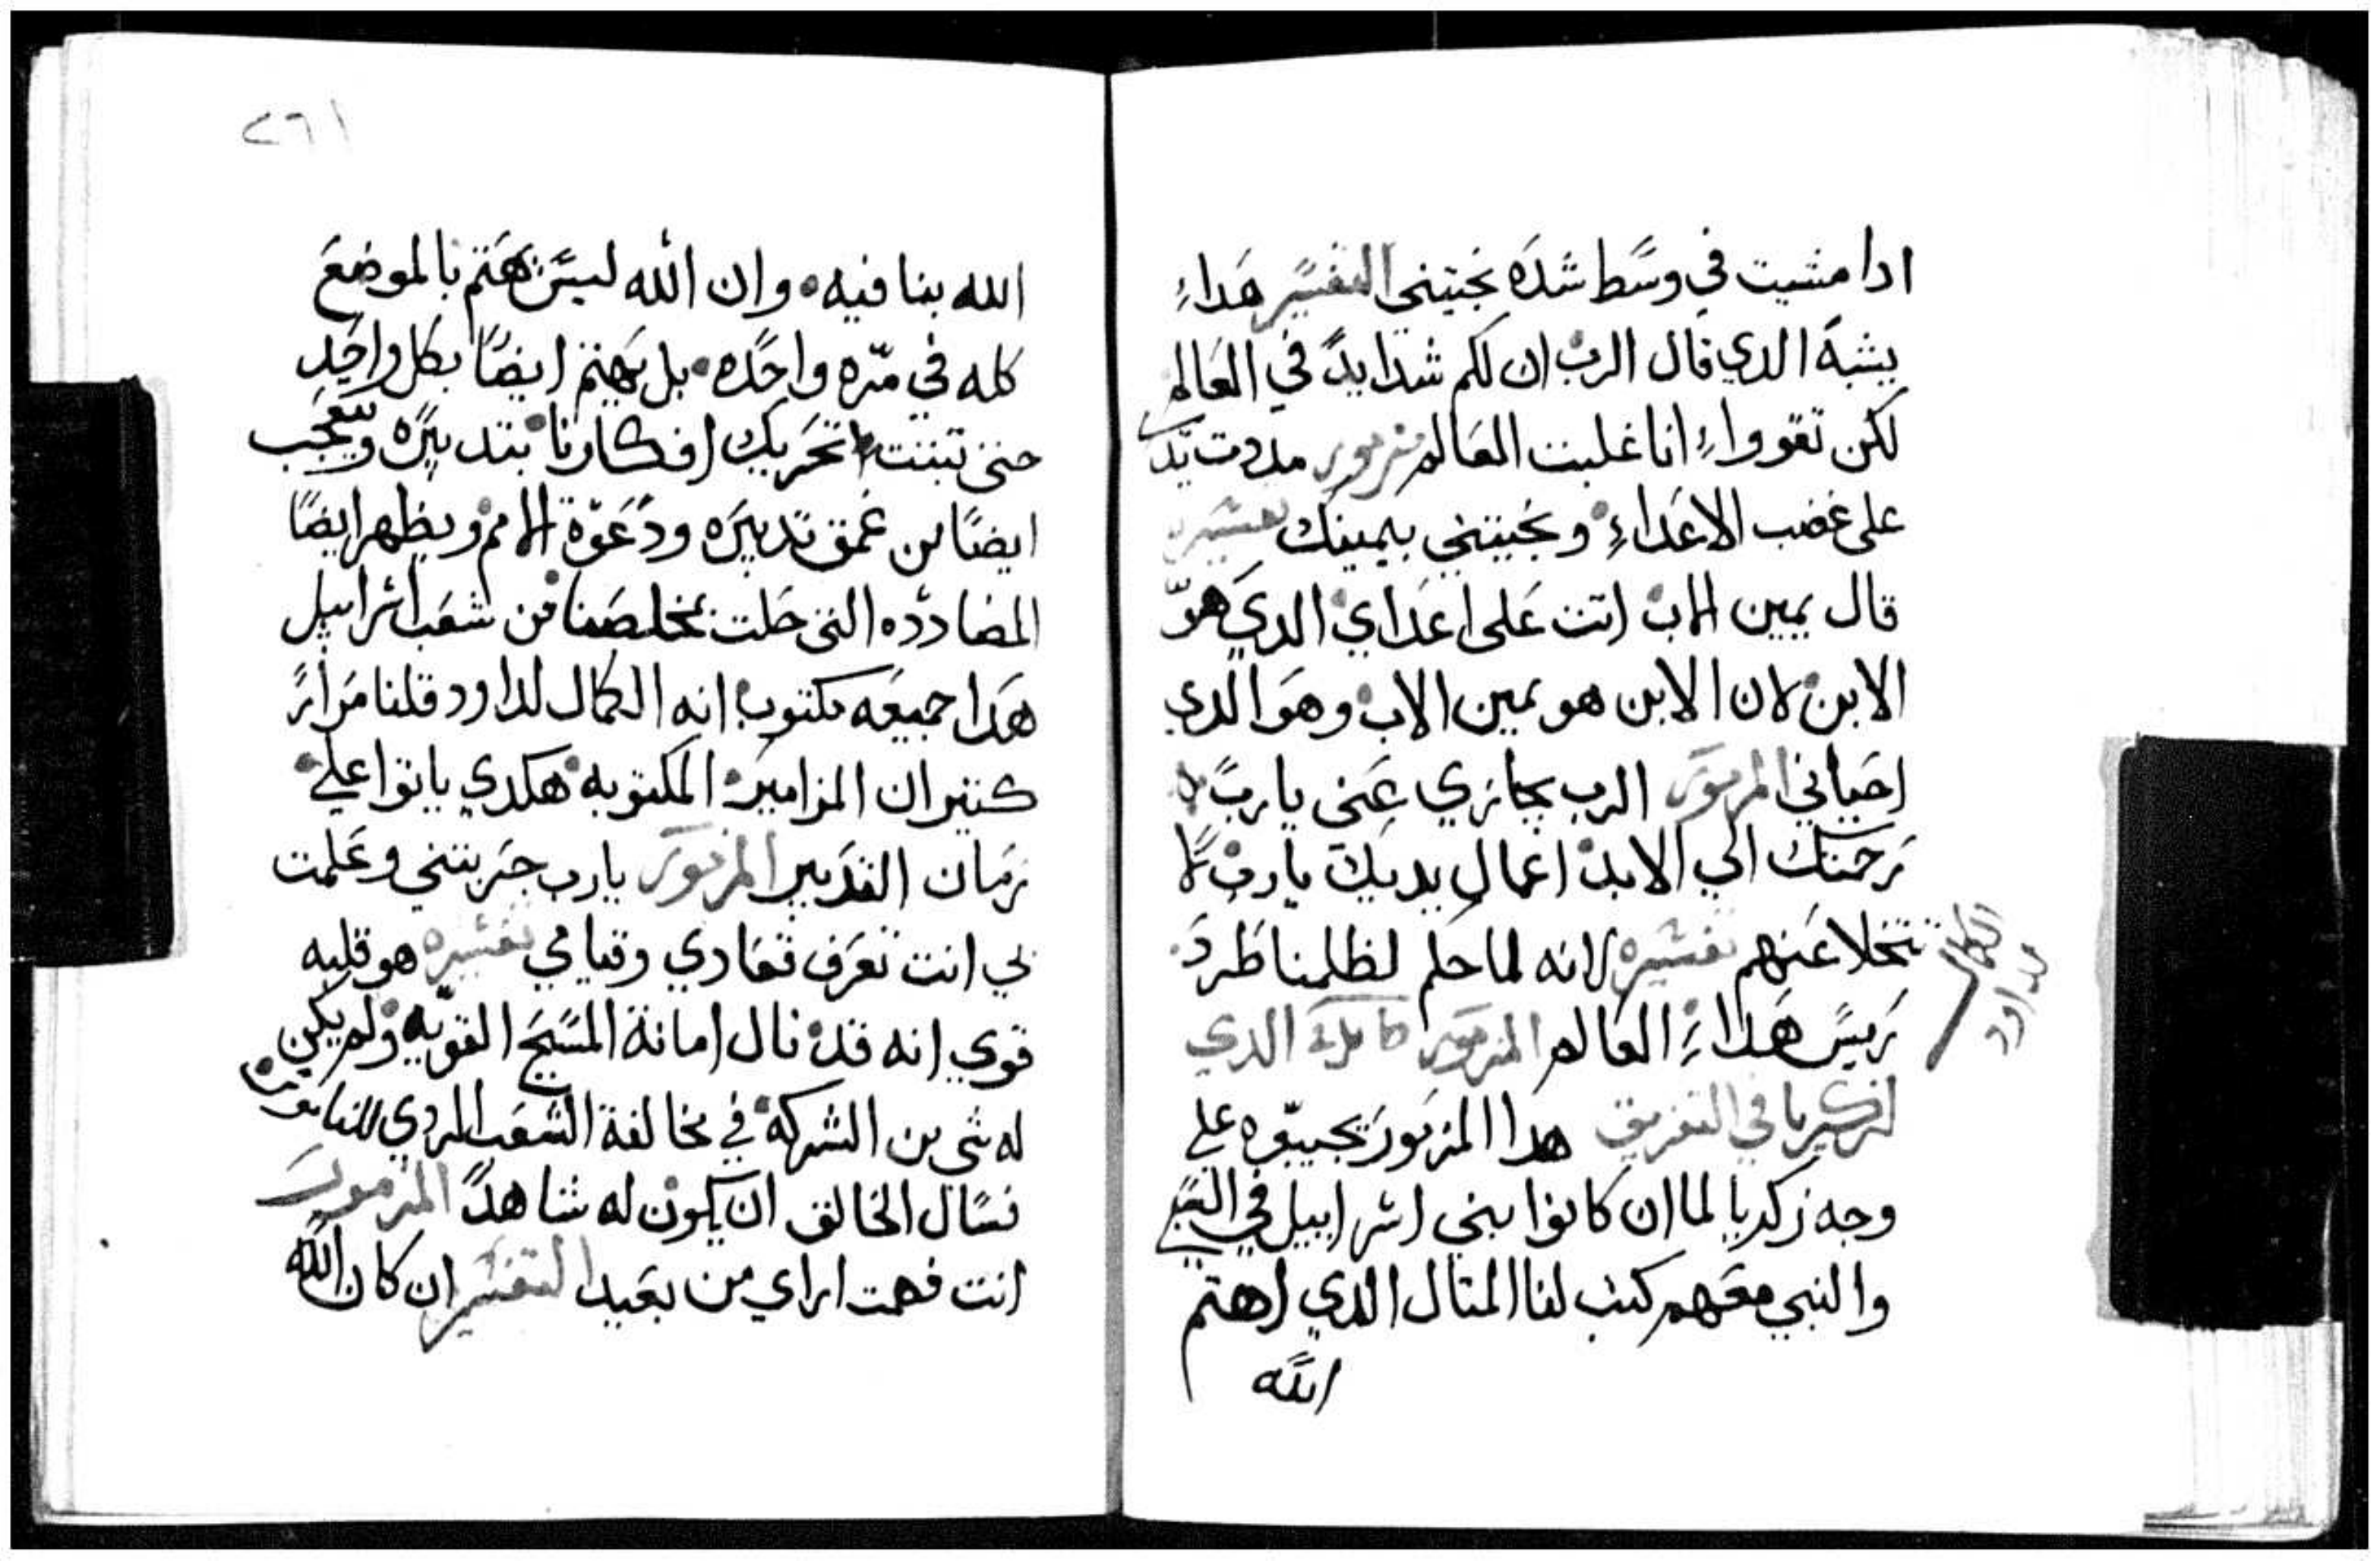 ادا مشيت في وسط شده نجيتني التفسير هداء
يشبه الدي قال الرب ان لكم شدايد في العالم
لكن تقوواء انا غلبت العالم مزمور مددت يدك
على غضب الاعداء ونجيتني بيمينك تفسيره
قال يمين الاب اتت على اعداي الدي هو
الابن لان الابن هو يمين الاب وهو الدي
احياني المزمور الرب يجازي عني يارب
رحمتك الي الابد اعمال يديك يارب لا
تتخلا عنهم تفسيره لانه لما حلم لظلمنا طرد
ريس هداء العالم المزمور الدي
لزكريا في التفريق هدا المزمور يجيبوه علي
وجه زكريا لما ان كانوا بني اسراييل في السبي
والنبي معهم كتب لنا المتال الدي اهتم
الله
الكمال
لداود
٢٦١
الله بنا فيه وان الله ليس يهتم بالموضع
كله في مره واحده بل يهتم ايضا بكل واحد
حتى تبتت تحريك افكارنا بتدبيره ويتعجب
ايضا من عمق تدبيره ودعوة الامم ويظهر ايضا
المضادده التي حلت بمخلصنا من شعب اسراييل
هدا جميعه مكتوب انه الكمال لداود قلنا مرار
كتير ان المزامير المكتوبه هكدي ياتوا علي
زمان القديم المزمور يارب جربتني وعلمت
بي انت تعرف قعادي وقيامي تفسيره هو قلبه
قوي انه قد نال امانة المسيح القويه ولم يكن
له شي من الشركة في مخالفة الشعب الردي للناموس
نسال الخالق ان يكون له شاهد المزمور
انت فهمت اراي من بعيد التفسير ان كان الله